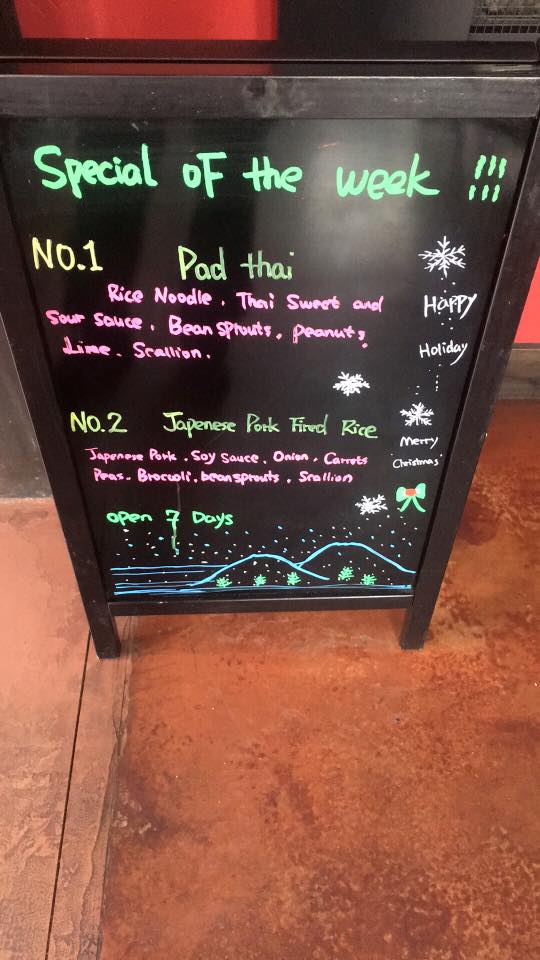 Special of the week !!!
NO.1 Pad thai
Rice Noodle, Thai Sweet and
Sour Sauce, Bean sprouts, peanuts,
Lime. Scallion.
Happy
Holiday
NO.2 Japenese Pork Fired Rice
Japenese Pork, Soy Sauce, Onion, Carrots
Peas. Broccoli, bean sprouts, Scallion
Merry
Christmas
open 7 Days